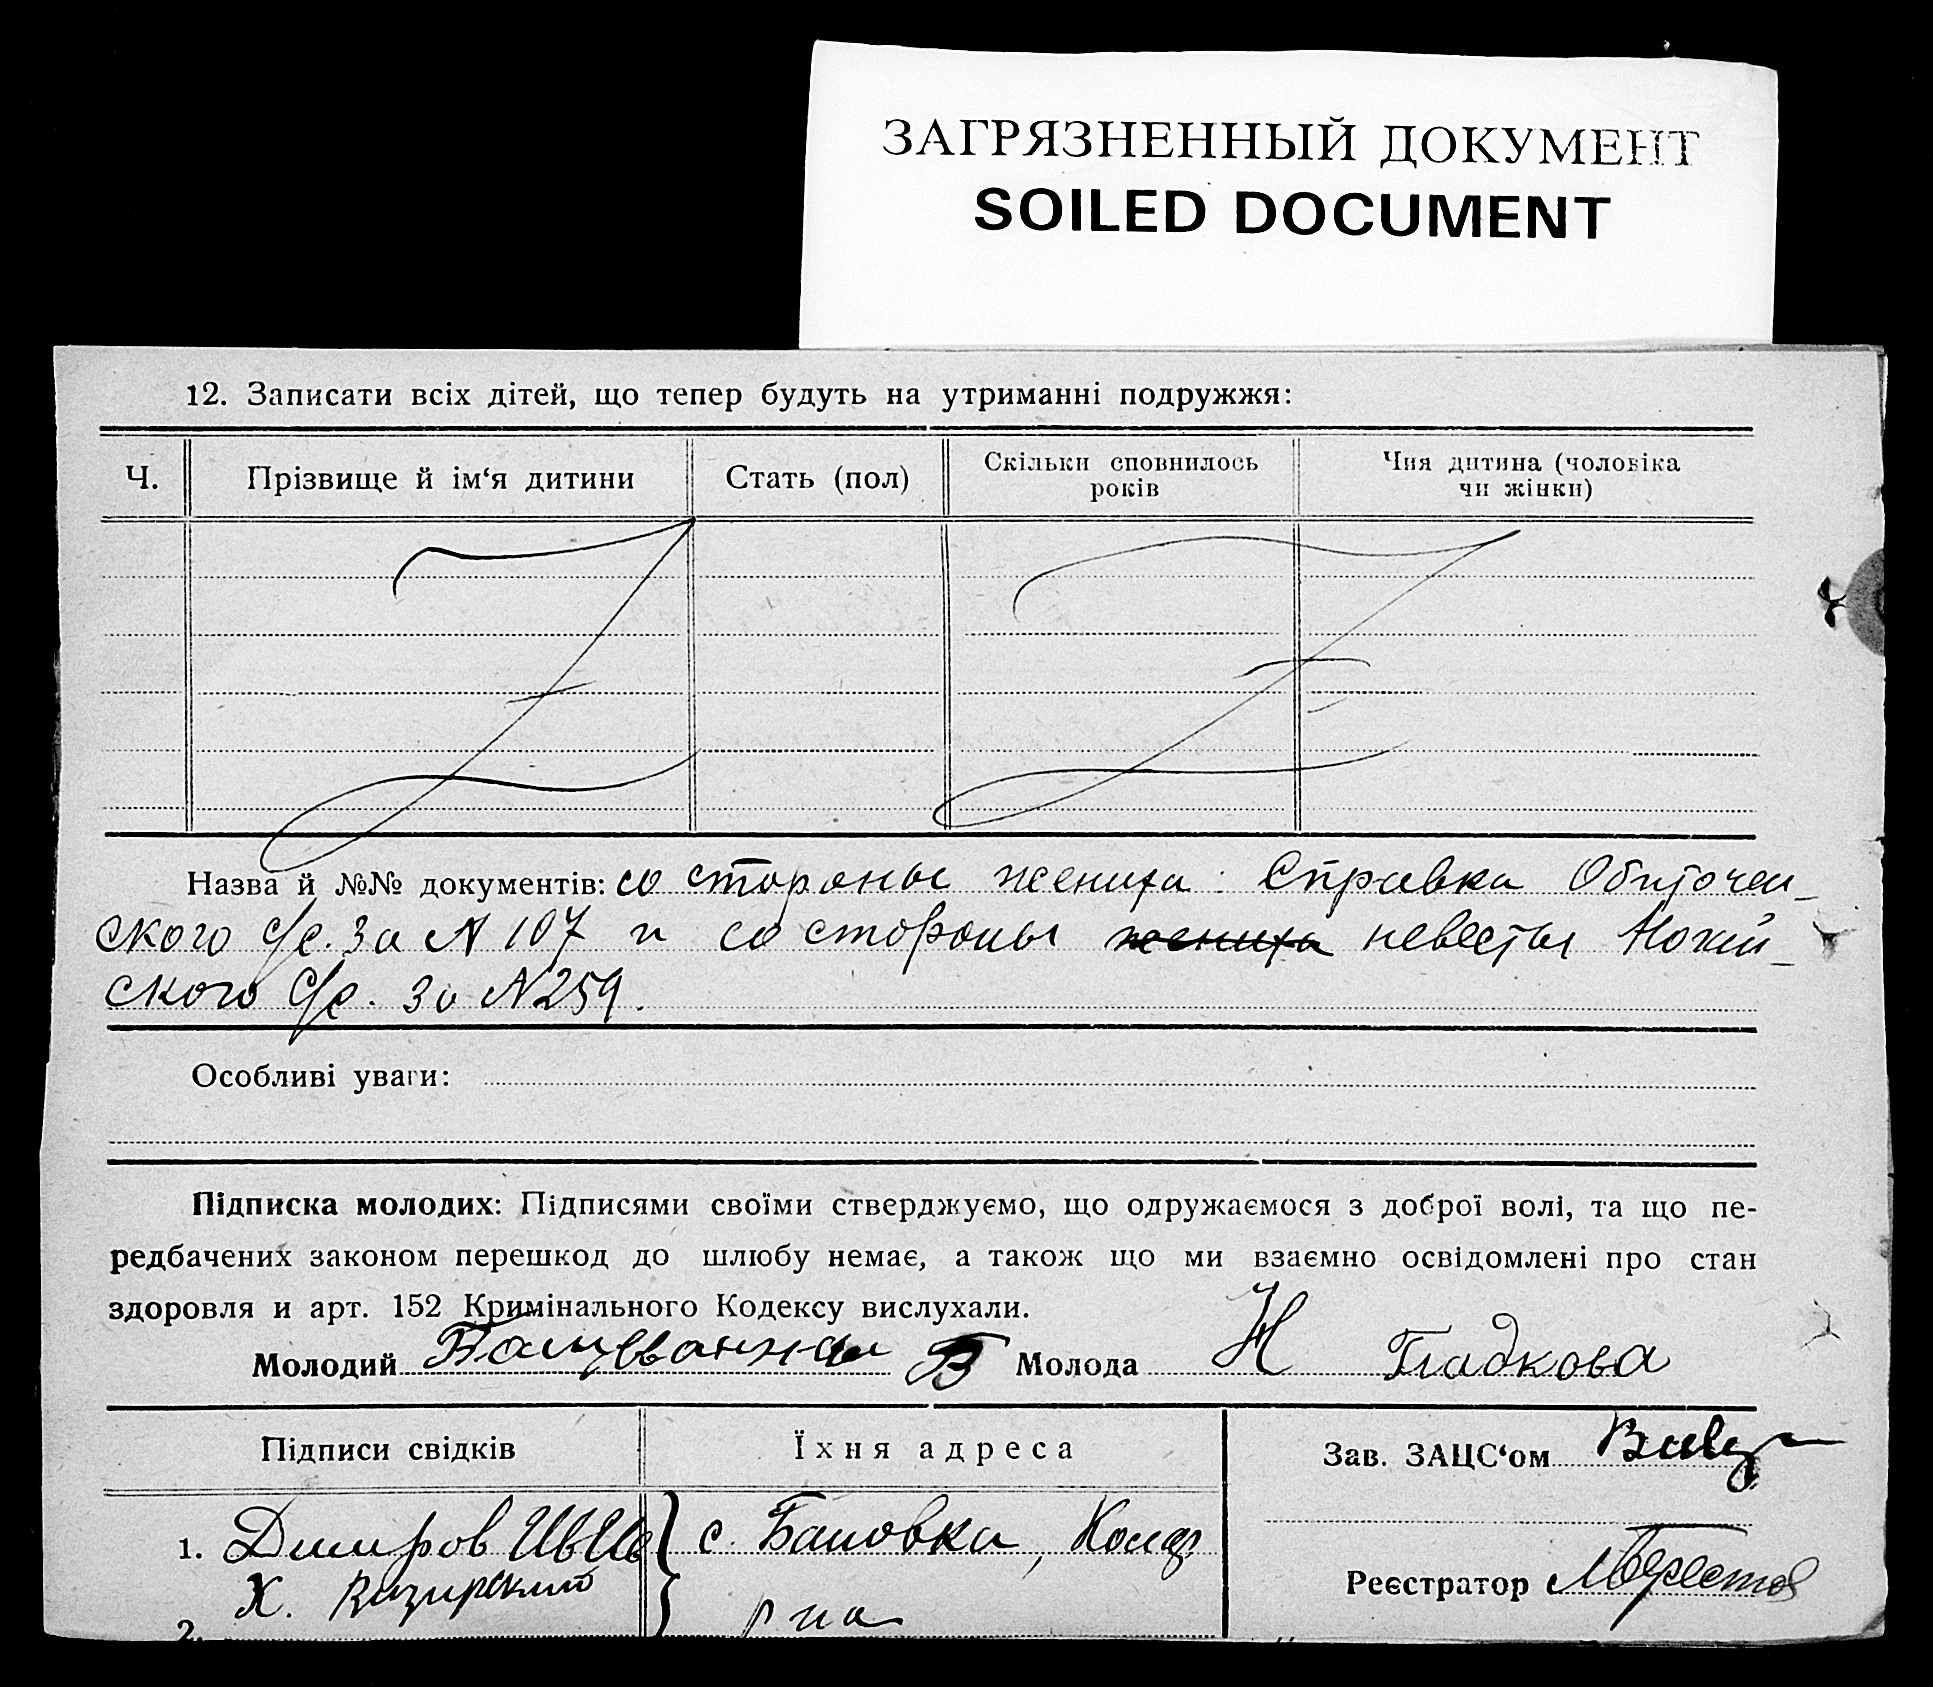 ЗАГРЯЗНЕННЫЙ ДОКУМЕНТ
SOILED DOCUMENT
12. Записати всіх дітей, що тепер будуть на утриманні подружжя:
Ч. Прізвище й ім‘я дитини Стать (пол) Скільки сповнилось років Чия дитина (чоловіка чи жінки)
Назва й №№ документів: со стороны жениха: Справка Обиточен-
ского с/с. за N 107 и со стороны жениха невесты Ногай-
ского с/с. за N 259.
Особливі уваги:
Підписка молодих: Підписями своїми стверджуємо, що одружаємося з доброї волі, та що пе-
редбачених законом перешкод до шлюбу немає, а також що ми взаємно освідомлені про стан
здоровля и арт. 152 Кримінального Кодексу вислухали.
Молодий Молода Н Гладкова
Підписи свідків Їхня адреса Зав. ЗАЦС‘ом
1. Димиров с. Бановка,
Х. Визирский Реєстратор
2. р на